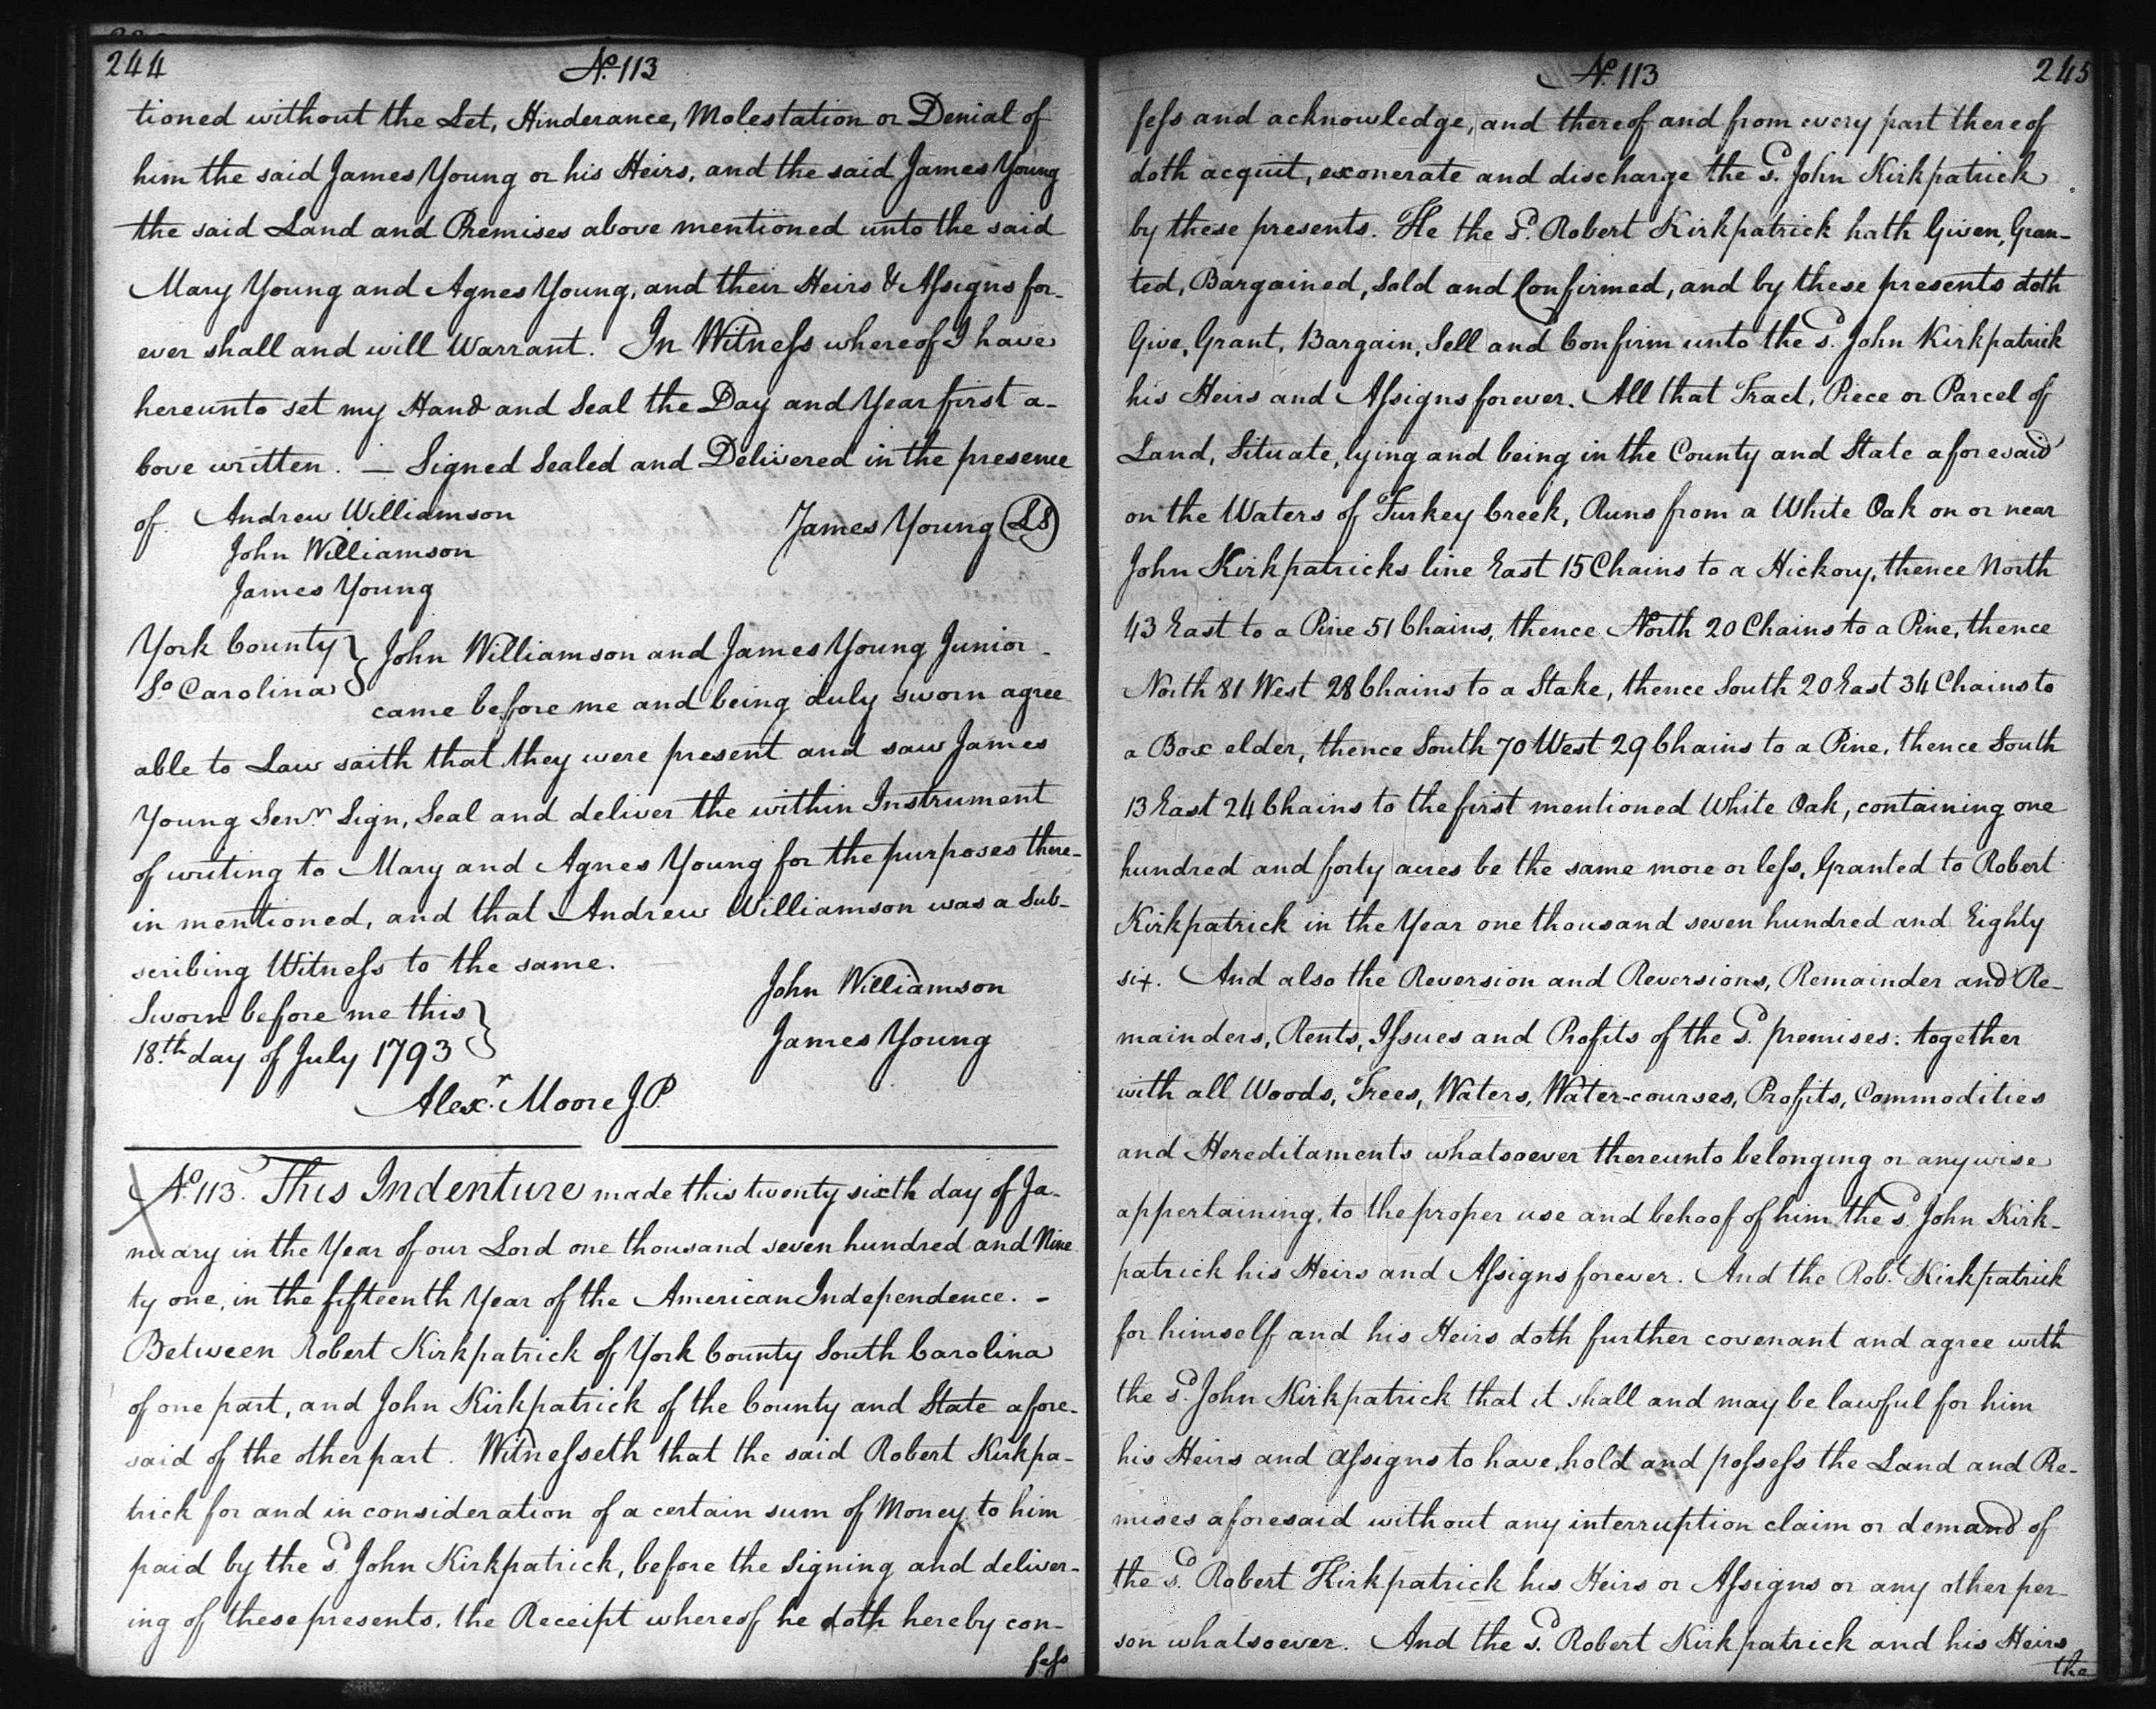 244
No. 113
tioned without the Let, Hinderance, Molestation or Denial of
him the said James Young or his Heirs, and the said James Young
the said Land and Premises above mentioned unto the said
Mary Young and Agnes Young, and their Heirs & Assigns for-
ever shall and will Warrant. In Witness whereof I have
hereunto set my Hand and Seal the Day and Year first a-
bove written. — Signed Sealed and Delivered in the presence
of. Andrew Williamson James Young (LS)
John Williamson
James Young
York County } John Williamson and James Young Junior
So Carolina } came before me and being duly sworn agree
able to Law saith that they were present and saw James
Young Senr. Sign, Seal and deliver the within Instrument
of writing to Mary and Agnes Young for the purposes there-
in mentioned, and that Andrew Williamson was a Sub-
scribing Witness to the same.
John Williamson
Sworn before me this }
18.th day of July 1793 } James Young
Alexr. Moore J.P.
No. 113. This Indenture made this twenty sixth day of Ja-
nuary in the Year of our Lord one thousand seven hundred and Nine
ty one, in the fifteenth Year of the American Independence. -
Between Robert Kirkpatrick of York County South Carolina
of one part, and John Kirkpatrick of the County and State afore-
said of the other part. Witnesseth that the said Robert Kirkpa-
trick for and in consideration of a certain sum of Money to him
paid by the sd. John Kirkpatrick, before the Signing and deliver-
ing of these presents, the Receipt whereof he doth hereby con-
fess
No. 113
245
fess and acknowledge, and thereof and from every part thereof
doth acquit, exonerate and discharge the sd. John Kirkpatrick
by these presents. He the sd. Robert Kirkpatrick hath Given, Gran-
ted, Bargained, Sold and Confirmed, and by these presents doth
Give, Grant, Bargain, Sell and Confirm unto the sd. John Kirkpatrick
his Heirs and Assigns forever. All that Tract, Piece or Parcel of
Land, Situate, lying and being in the County and State aforesaid
on the Waters of Turkey Creek, Runs from a White Oak on or near
John Kirkpatricks line East 15 Chains to a Hickory, thence North
43 East to a Pine 51 Chains, thence North 20 Chains to a Pine, thence
North 81 West 28 Chains to a Stake, thence South 20 East 34 Chains to
a Box elder, thence South 70 West 29 Chains to a Pine, thence South
13 East 24 Chains to the first mentioned White Oak, containing one
hundred and forty acres be the same more or less, Granted to Robert
Kirkpatrick in the Year one thousand seven hundred and Eighty
six. And also the Reversion and Reversions, Remainder and Re-
mainders, Rents, Issues and Profits of the sd. premises: together
with all Woods, Trees, Waters, Water-courses, Profits, Commodities
and Hereditaments whatsoever thereunto belonging or any wise
appertaining, to the proper use and behoof of him the sd. John Kirk-
patrick his Heirs and Assigns forever. And the Robt. Kirkpatrick
for himself and his Heirs doth further covenant and agree with
the sd. John Kirkpatrick that it shall and may be lawful for him
his Heirs and assigns to have, hold and possess the Land and Re-
mises aforesaid without any interruption claim or demand of
the sd. Robert Kirkpatrick his Heirs or Assigns or any other per-
son whatsoever. And the sd. Robert Kirkpatrick and his Heirs
the